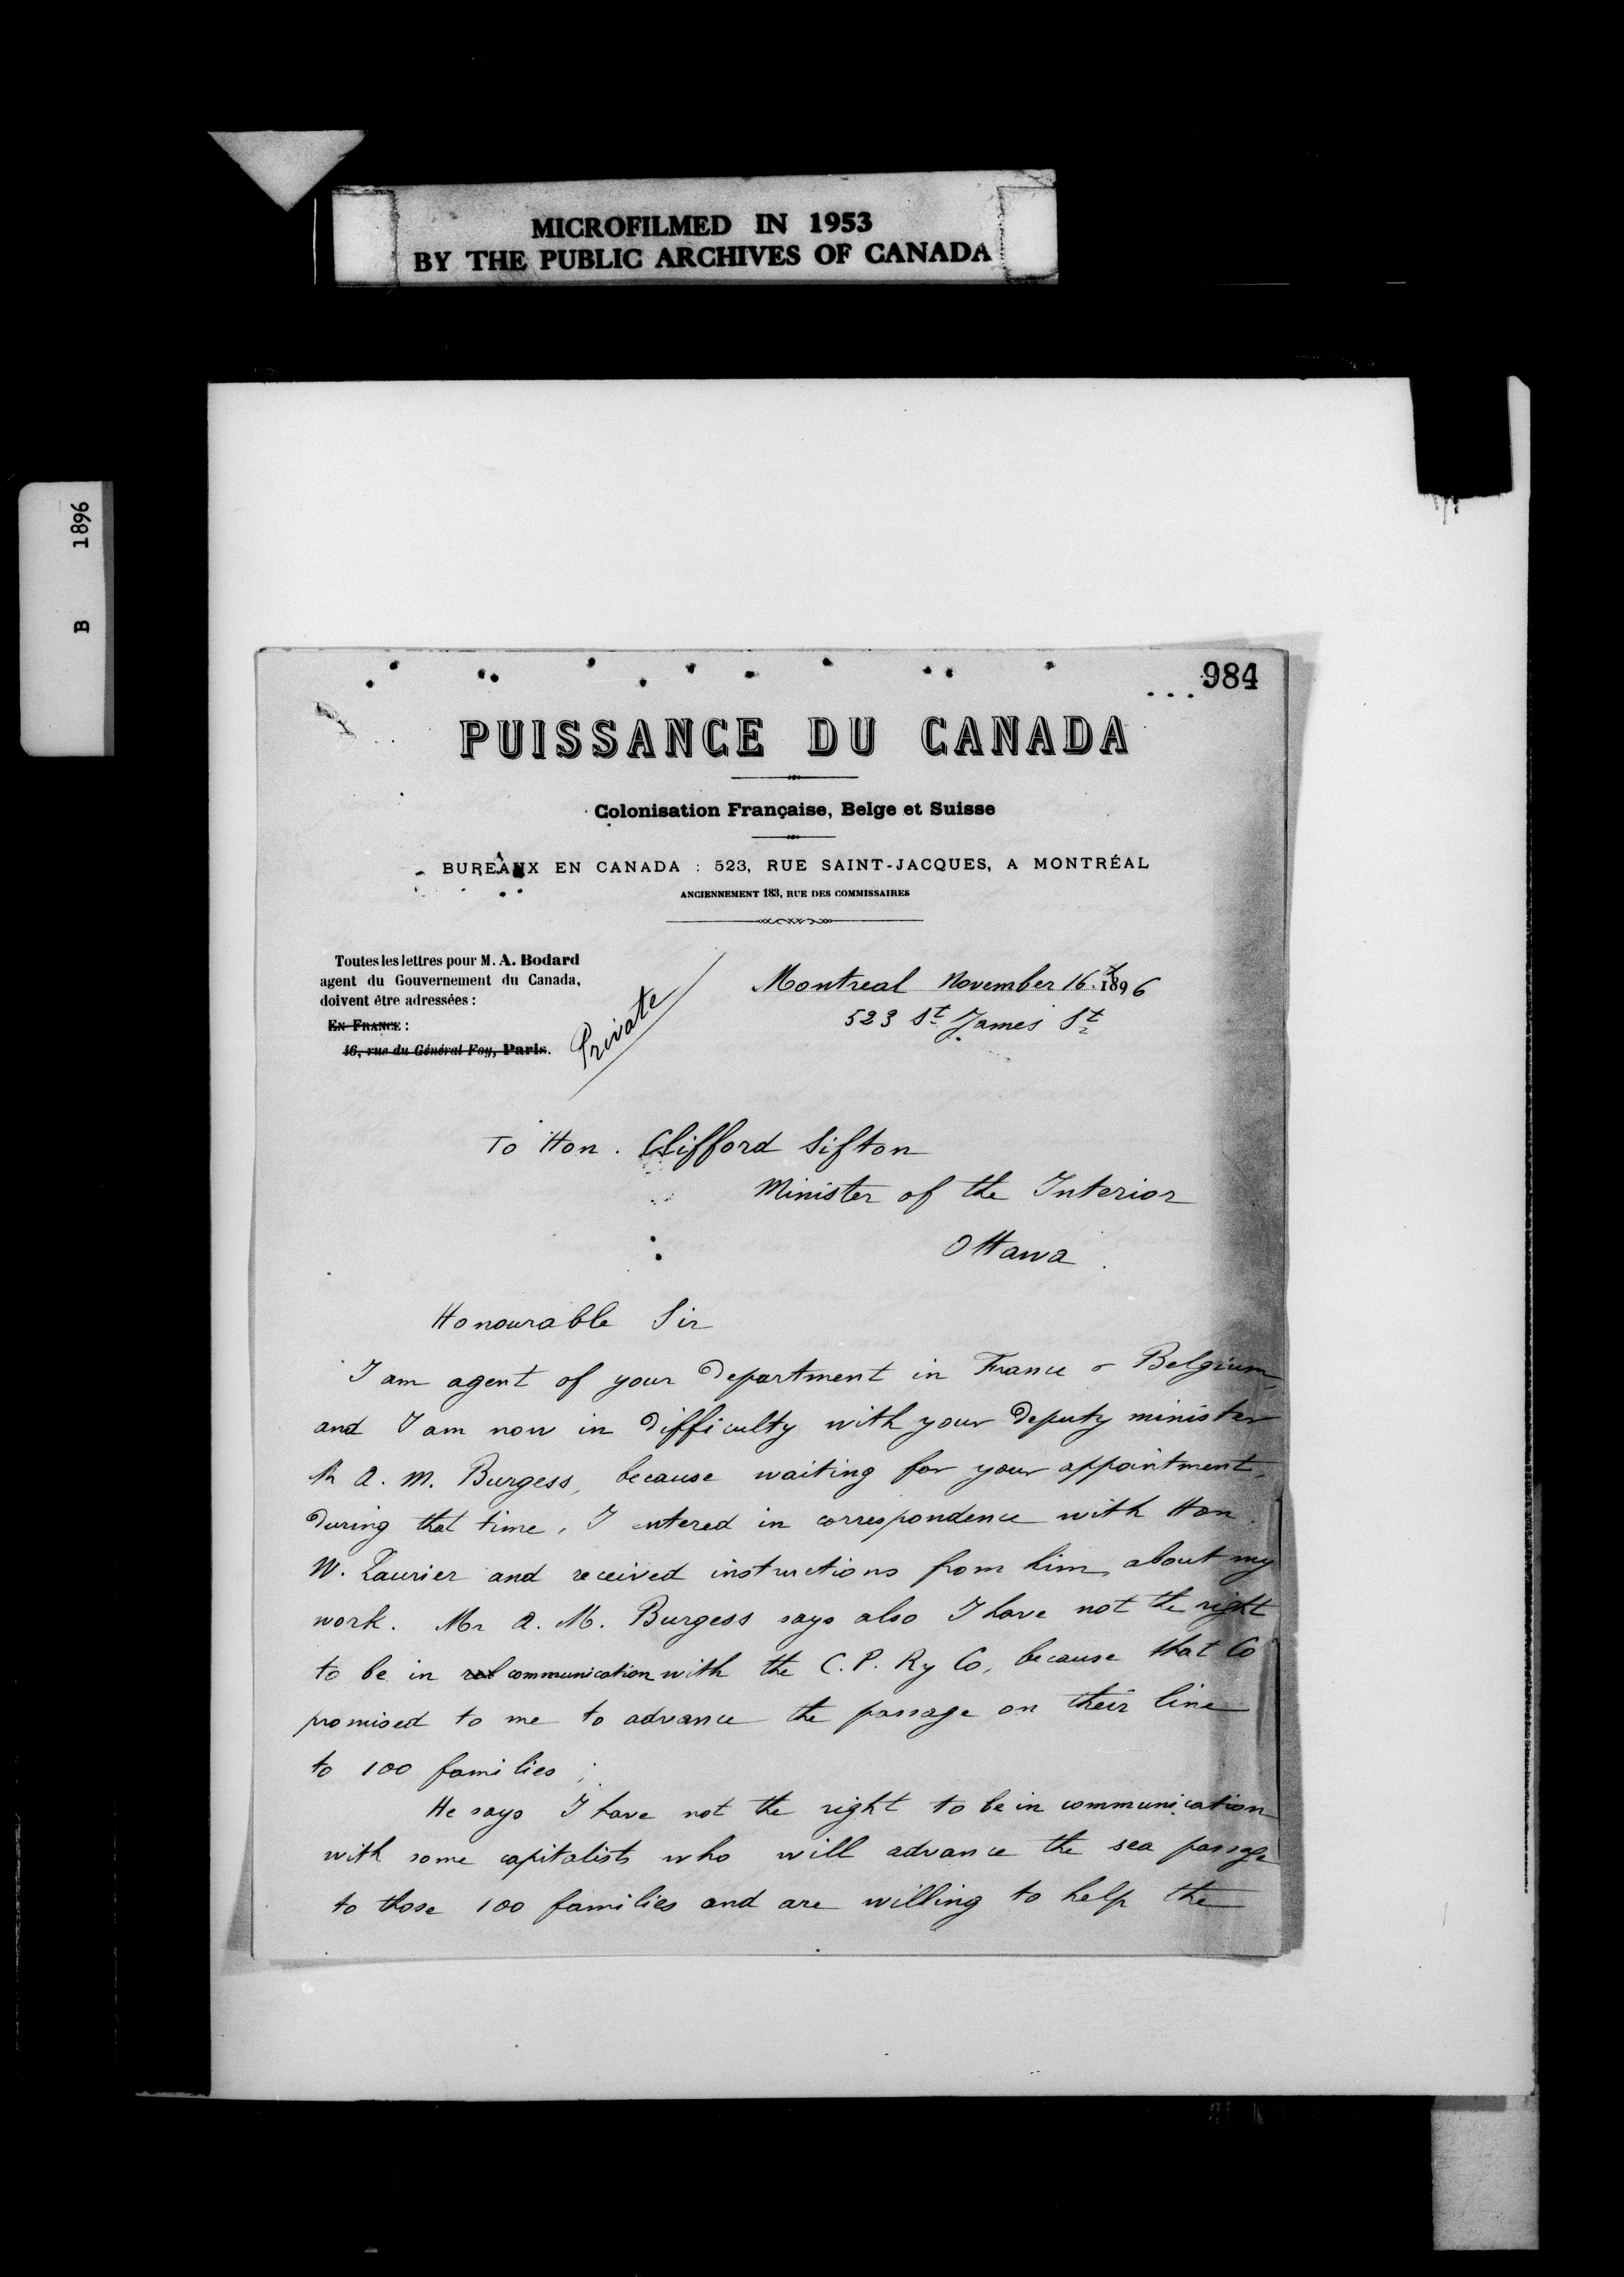 MICROFILMED IN 1953
BY THE PUBLIC ARCHIVES OF CANADA
B 1896
984
PUISSANCE DU CANADA
Colonisation Française, Belge et Suisse
BUREAUX EN CANADA : 523, RUE SAINT-JACQUES, A MONTRÉAL
ANCIENNEMENT 183, RUE DES COMMISSAIRES
Toutes les lettres pour M. A. Bodard
agent du Gouvernement du Canada,
doivent être adressées :
EN FRANCE :
16, rue du Général Foy, Paris.
Private
Montreal November 16th 1896
523 St James St
To Hon. Clifford Sifton
Minister of the Interior
Ottawa.
Honourable Sir
I am agent of your Department in France & Belgium,
and I am now in difficulty with your Deputy minister
Mr A. M. Burgess, because waiting for your appointment,
During that time, I entered in correspondence with Hon.
W. Laurier and received instructions from him about my
work. Mr A. M. Burgess says also I have not the right
to be in communication with the C. P. Ry Co, because that Co
promised to me to advance the passage on their line
to 100 families;
He says I have not the right to be in communication
with some capitalists who will advance the sea passage
to those 100 families and are willing to help the